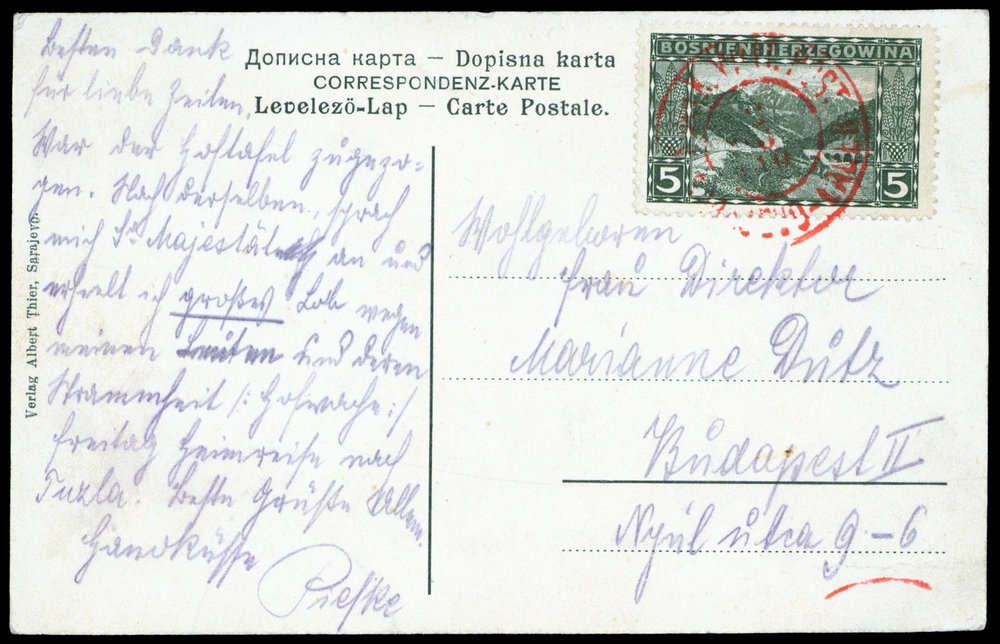 Besten Dank
für liebe Zeilen,
War der Hoftafel zugezo=
gen. Nach derselben, sprach
mich Sr Majestät an und
erhielt ich großes Lob wegen
meinen Leuten und deren
Strammheit /: Hofwache :/
Freitag Heimreise nach
Tuzla. Beste Grüße Allen.
Handküsse
Piefke
Дописна карта — Dopisna karta
CORRESPONDENZ-KARTE
Levelező-Lap — Carte Postale.
BOSNIEN-HERZEGOWINA
5 5
Wohlgeboren
Frau Direktor
Marianne Dutz
Budapest II
Nyúl utca 9-6
Verlag Albert Thier, Sarajevo.